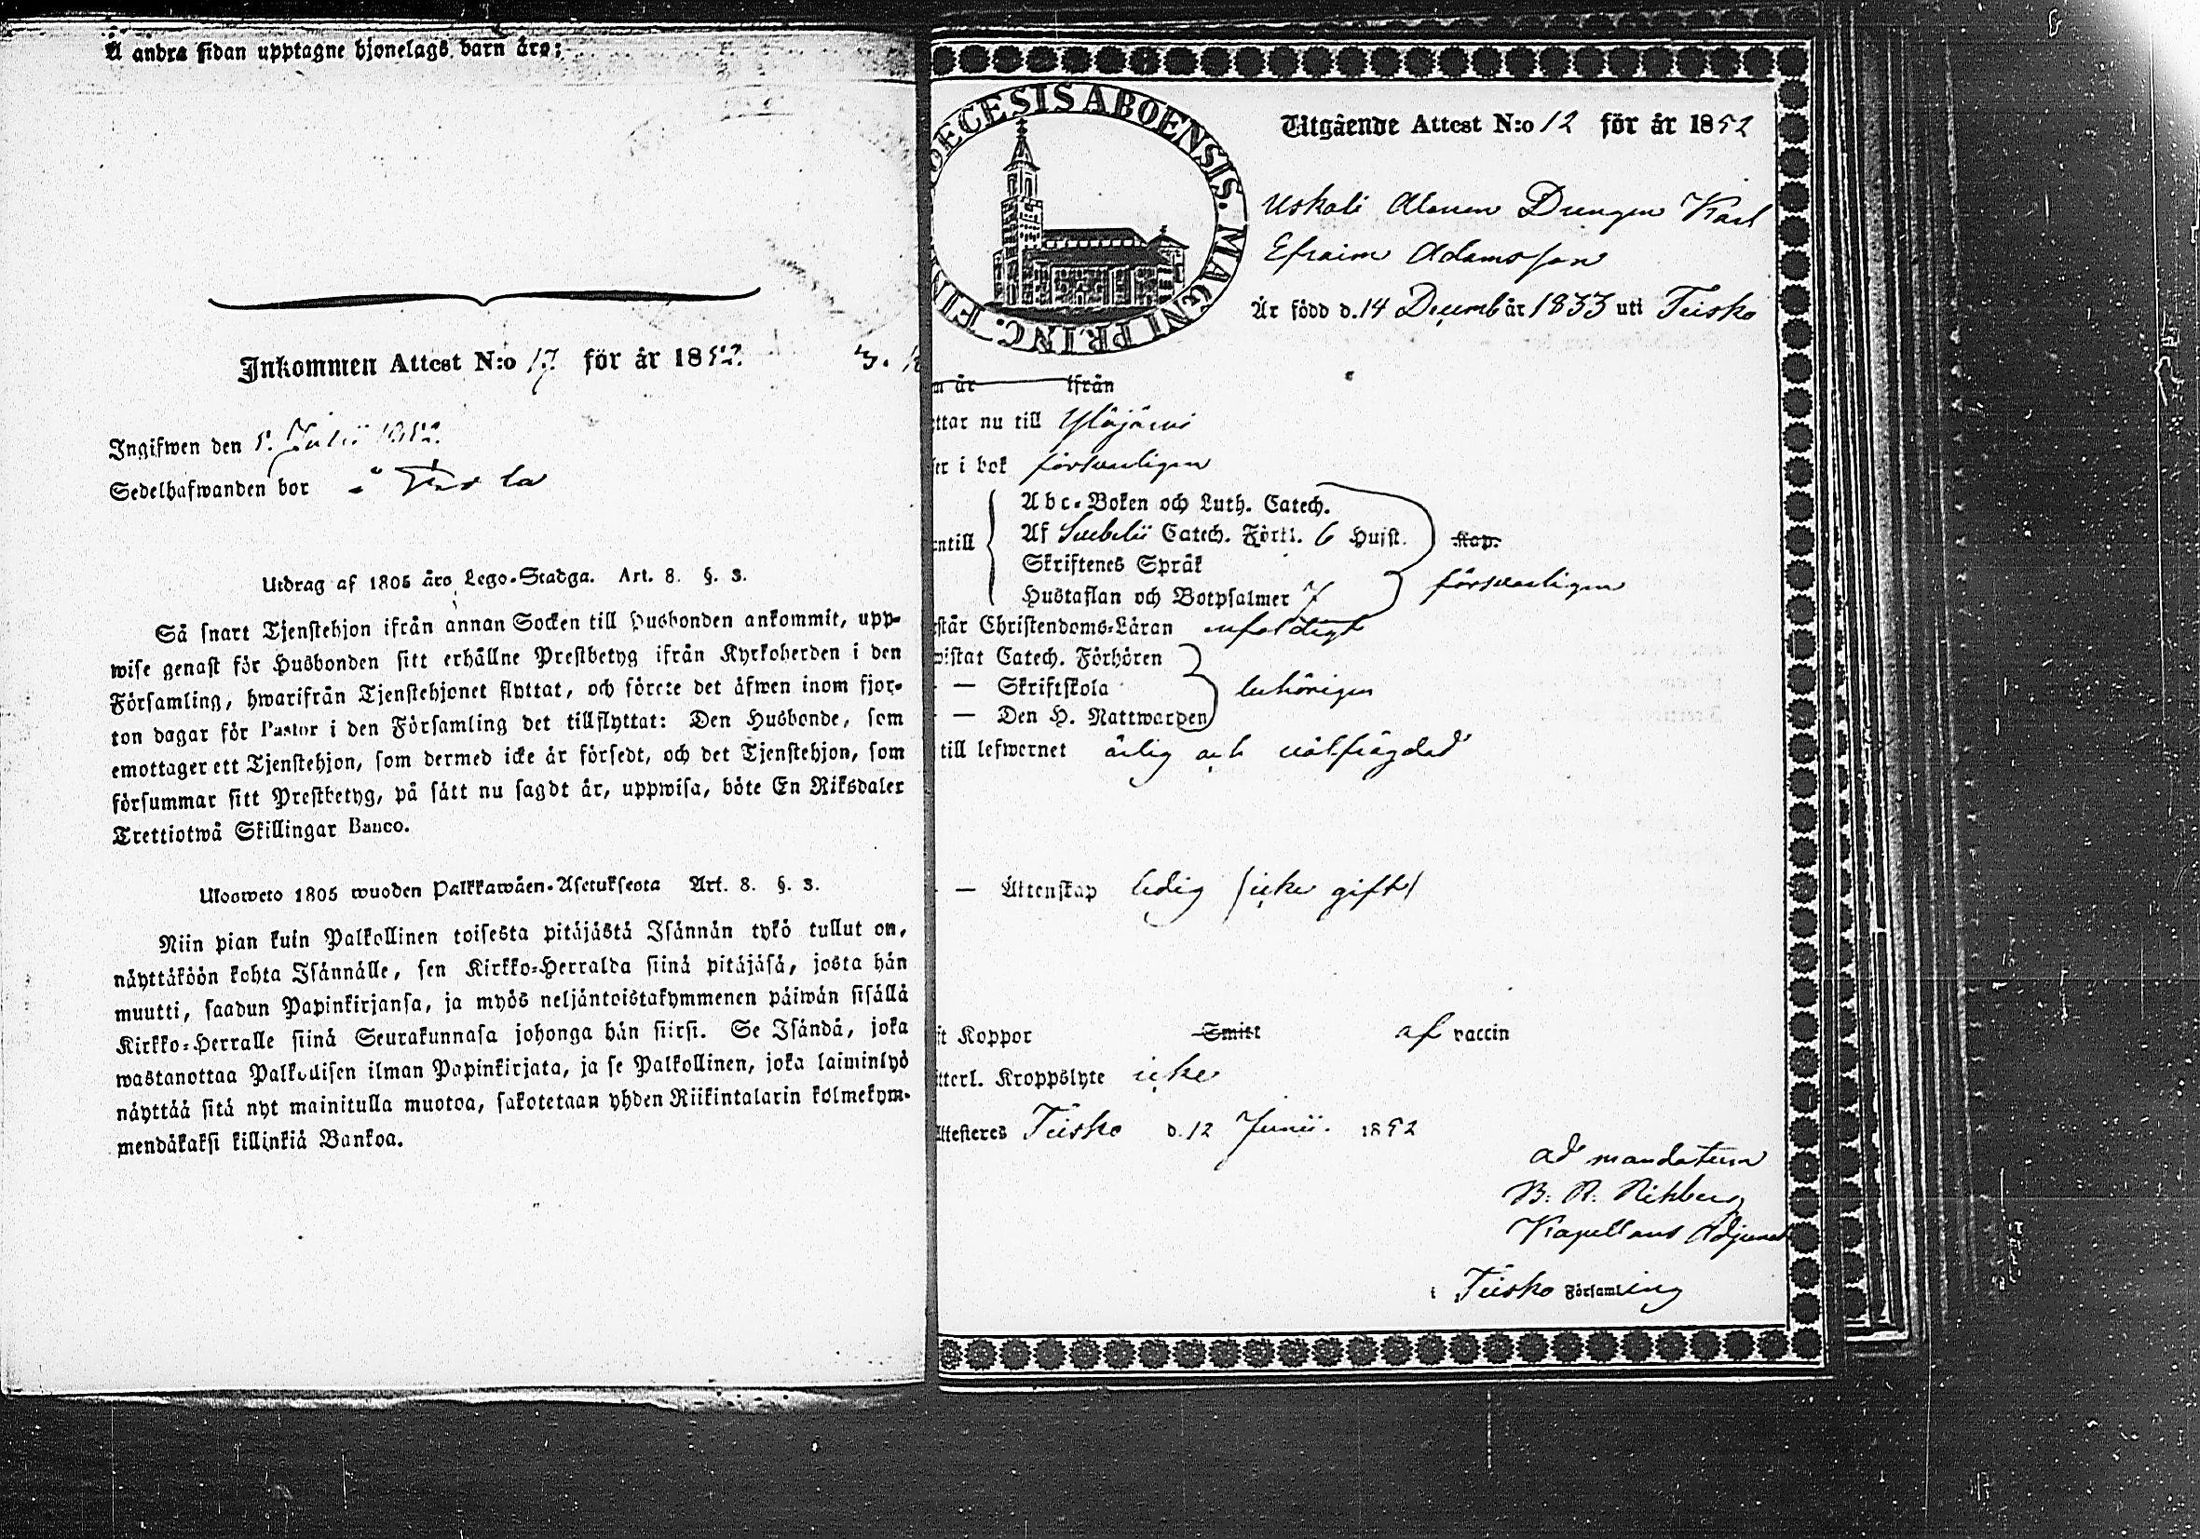 Å andra sidan upptagne hjonelags barn äro:
Inkommen Attest N:o 17. för år 1852.
Ingifwen den 5. Julii 1852.
Sedelhafwanden bor
Utdrag af 1805 års Lego-Stadga. Art. 8. §. 3.
Så snart Tjenstehjon ifrån annan Socken till Husbonden ankommit, upp-
wise genast för Husbonden sitt erhållne Prestbetyg ifrån Kyrkoherden i den
Församling, hwarifrån Tjenstehjonet flyttat, och förete det äfwen inom fjor-
ton dagar för Pastor i den Församling det tillflyttat: Den Husbonde, som
emottager ett Tjenstehjon, som dermed icke är försedt, och det Tjenstehjon, som
försummar sitt Prestbetyg, på sätt nu sagdt är, uppwisa, böte En Riksdaler
Trettiotwå Skillingar Banco.
Ulosweto 1805 wuoden Palkkawäen-Asetuksesta Art. 8. §. 3.
Niin pian kuin Palkollinen toisesta pitäjästä Isännän tykö tullut on,
näyttäköön kohta Isännälle, sen Kirkko-Herralda siinä pitäjäsä, josta hän
muutti, saadun Papinkirjansa, ja myös neljäntoistakymmenen päiwän sisällä
Kirkko-Herralle siinä Seurakunnasa johonga hän siirsi. Se Isändä, joka
wastanottaa Palkollisen ilman Papinkirjata, ja se Palkollinen, joka laiminlyö
näyttää sitä nyt mainitulla muotoa, sakotetaan yhden Riikintalarin kolmekym-
mendäkaksi killinkiä Bankoa.
DECESIS ABOENSIS. MAGNI PRINC. FIN
Utgående Attest N:o 12 för år 1852
Uskali Drengen Karl
Efraim Adamsson
Är född d. 14 Decemb år 1833 uti Teisko
år ifrån
ttar nu till Ylöjärvi
er i bok försvarligen
Abc-Boken och Luth. Catech.
ntill Af Svebelii Catech. Förkl. 6 Hufst. Kap.
Skriftenes Språk
Hustaflan och Botpsalmer 7 försvarligen
står Christendoms-Läran enfaldigt
wistat Catech. Förhören
— Skriftskola behörigen
— Den H. Nattwarden
till lefwernet ärlig och välfrägdad
— Äktenskap ledig (icke gift)
ft Koppor Smitt af vaccin
tterl. Kroppslyte icke
Attesteres Teisko d. 12 Junii. 1852
ad mandatum
Kapellans Adjunct
i Teisko Församling